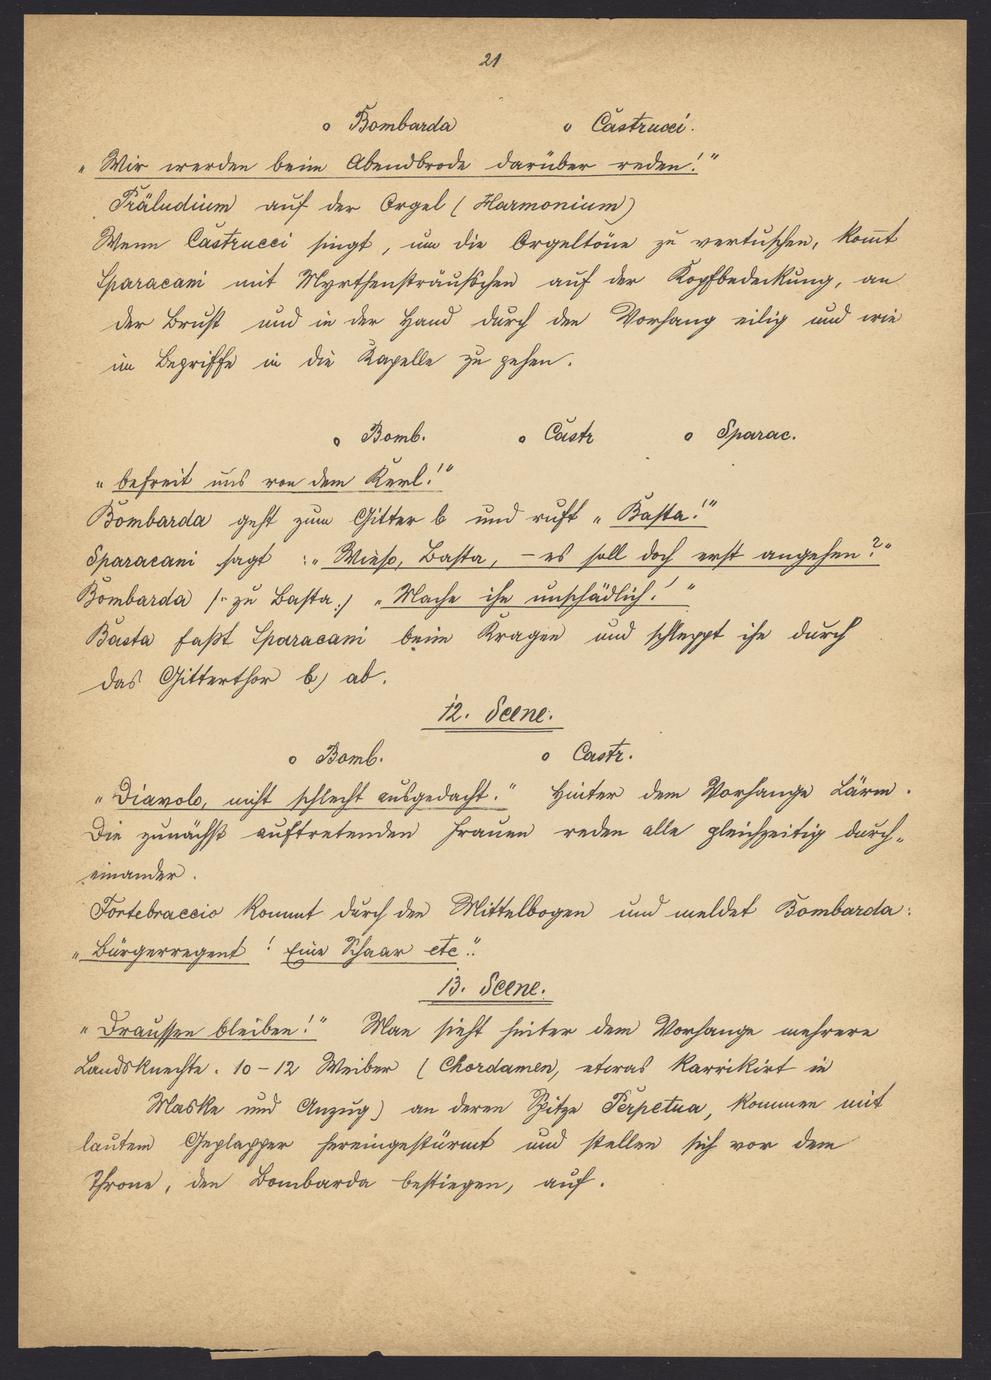 21
o Bombarda o Castrucci.
„Wir werden beim Abendbrode darüber reden!"
Präludium auf der Orgel (Harmonium)
Wenn Castrucci singt, um die Orgeltöne zu vertuschen, kom̄t
Sparacani mit Myrthensträußchen auf der Kopfbedeckung, an
der Brust und in der Hand durch den Vorhang eilig und wie
im Begriffe in die Kapelle zu gehen.
o Bomb. o Castr o Sparac.
„befreit uns von dem Kerl!"
Bombarda geht zum Gitter b und ruft „Basta!"
Sparacani sagt: „Wieso, Basta, – es soll doch erst angehen?"
Bombarda /: zu Basta :/ „Mache ihn unschädlich!"
Basta faßt Sparacani beim Kragen und schleppt ihn durch
das Gitterthor b) ab.
12. Scene.
o Bomb. o Castr.
„Diavolo, nicht schlecht ausgedacht." Hinter dem Vorhange Lärm.
Die zunächst auftretenden Frauen reden alle gleichzeitig durch-
einander.
Fortebraccio kommt durch den Mittelbogen und meldet Bombarda:
„Bürgerregent! Eine Schaar etc."
13. Scene.
„Draussen bleiben!" Man sieht hinter dem Vorhange mehrere
Landsknechte. 10–12 Weiber (Chordamen, etwas karrikirt in
Maske und Anzug) an deren Spitze Perpetua, kommen mit
lautem Geplapper hereingestürmt und stellen sich vor dem
Throne, den Bombarda bestiegen, auf.